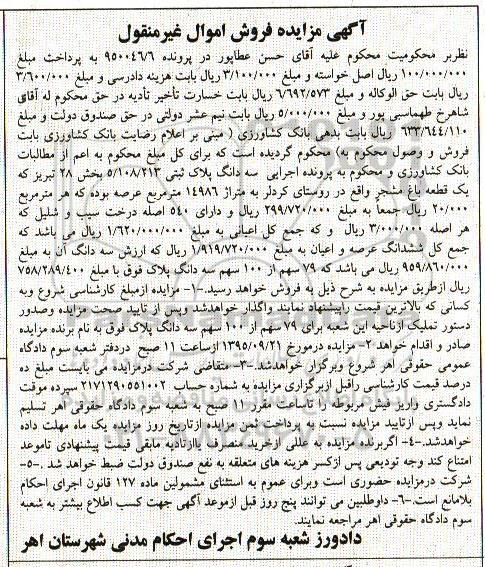 آگهی مزایده فروش اموال غیرمنقول
نظربر محکومیت محکوم علیه آقای حسن عطاپور در پرونده ۹۵۰۰۴۶/۶ به پرداخت مبلغ
۱۰۰/۰۰۰/۰۰۰ ریال اصل خواسته و مبلغ ۳/۱۰۰/۰۰۰ ریال بابت هزینه دادرسی و مبلغ ۳/۶۰۰/۰۰۰
ریال بابت حق الوکاله و مبلغ ۶/۶۹۲/۵۷۳ ریال بابت خسارت تأخیر تأدیه در حق محکوم له آقای
شاهرخ طهماسبی پور و مبلغ ۵/۰۰۰/۰۰۰ ریال بابت نیم عشر دولتی در حق صندوق دولت و مبلغ
۶۳۳/۶۴۴/۱۱۰ ریال بابت بدهی بانک کشاورزی ( مبنی بر اعلام رضایت بانک کشاورزی بابت
فروش و وصول محکوم به) محکوم گردیده است که برای کل مبلغ محکوم به اعم از مطالبات
بانک کشاورزی و محکوم به پرونده اجرایی سه دانگ پلاک ثبتی ۵/۱۰۸/۲۱۳ بخش ۲۸ تبریز که
یک قطعه باغ مشجر واقع در روستای کردلر به متراژ ۱۴۹۸۶ مترمربع عرصه بوده که هر مترمربع
۲۰/۰۰۰ ریال جمعاً به مبلغ ۲۹۹/۷۲۰/۰۰۰ ریال و دارای ۵۴۰ اصله درخت سیب و شلیل که
هر اصله ۳/۰۰۰/۰۰۰ ریال و که جمع کل اعیانی به مبلغ ۱/۶۲۰/۰۰۰/۰۰۰ ریال می باشد که
جمع کل ششدانگ عرصه و اعیان به مبلغ ۱/۹۱۹/۷۲۰/۰۰۰ ریال که ارزش سه دانگ آن به مبلغ
۹۵۹/۸۶۰/۰۰۰ ریال می باشد که ۷۹ سهم از ۱۰۰ سهم سه دانگ پلاک فوق با مبلغ ۷۵۸/۲۸۹/۴۰۰
ریال ازطریق مزایده به شرح ذیل به فروش خواهد رسید.-۱- مزایده ازمبلغ کارشناسی شروع وبه
کسانی که بالاترین قیمت راپیشنهاد نمایند واگذار خواهدشد وپس از تایید صحت مزایده وصدور
دستور تملیک ازناحیه این شعبه برای ۷۹ سهم از ۱۰۰ سهم سه دانگ پلاک فوق به نام برنده مزایده
صادر و اقدام خواهد ۲- مزایده درمورخ ۱۳۹۵/۰۹/۲۱ ازساعت ۱۱ صبح دردفتر شعبه سوم دادگاه
عمومی حقوقی اهر شروع وبرگزار خواهدشد.-۳-متقاضی شرکت درمزایده می بایست مبلغ ده
درصد قیمت کارشناسی راقبل ازبرگزاری مزایده به شماره حساب ۲۱۷۱۲۹۰۵۵۱۰۰۲ سپرده موقت
دادگستری واریز فیش مربوطه را تاساعت مقرر ۱۰ صبح به شعبه سوم دادگاه حقوقی اهر تسلیم
نماید وپس ازتایید مزایده نسبت به پرداخت ثمن مزایده ازتاریخ روز مزایده یک ماه مهلت داده
خواهدشد.-۴- اگربرنده مزایده به عللی ازخرید منصرف یاازتادیه مابقی قیمت پیشنهادی تاموعد
امتناع کند وجه تودیعی پس ازکسر هزینه های متعلقه به نفع صندوق دولت ضبط خواهد شد .-۵-
شرکت درمزایده حضوری است وبرای عموم به استثنای مشمولین ماده ۱۲۷ قانون اجرای احکام
بلامانع است.-۶- داوطلبین می توانند پنج روز قبل ازموعد آگهی جهت کسب اطلاع بیشتر به شعبه
سوم دادگاه حقوقی اهر مراجعه نمایند.
دادورز شعبه سوم اجرای احکام مدنی شهرستان اهر